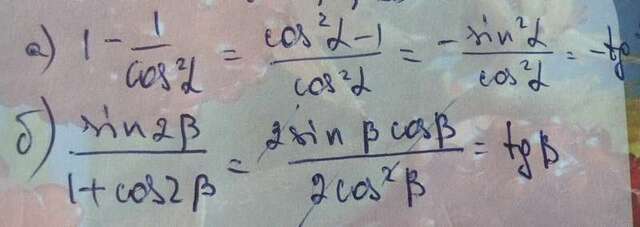 а) 1 - 1/cos²α = (cos²α - 1)/cos²α = -sin²α/cos²α = -tg
б) sin2β/(1 + cos2β) = 2 sin β cos β/(2cos²β) = tg β